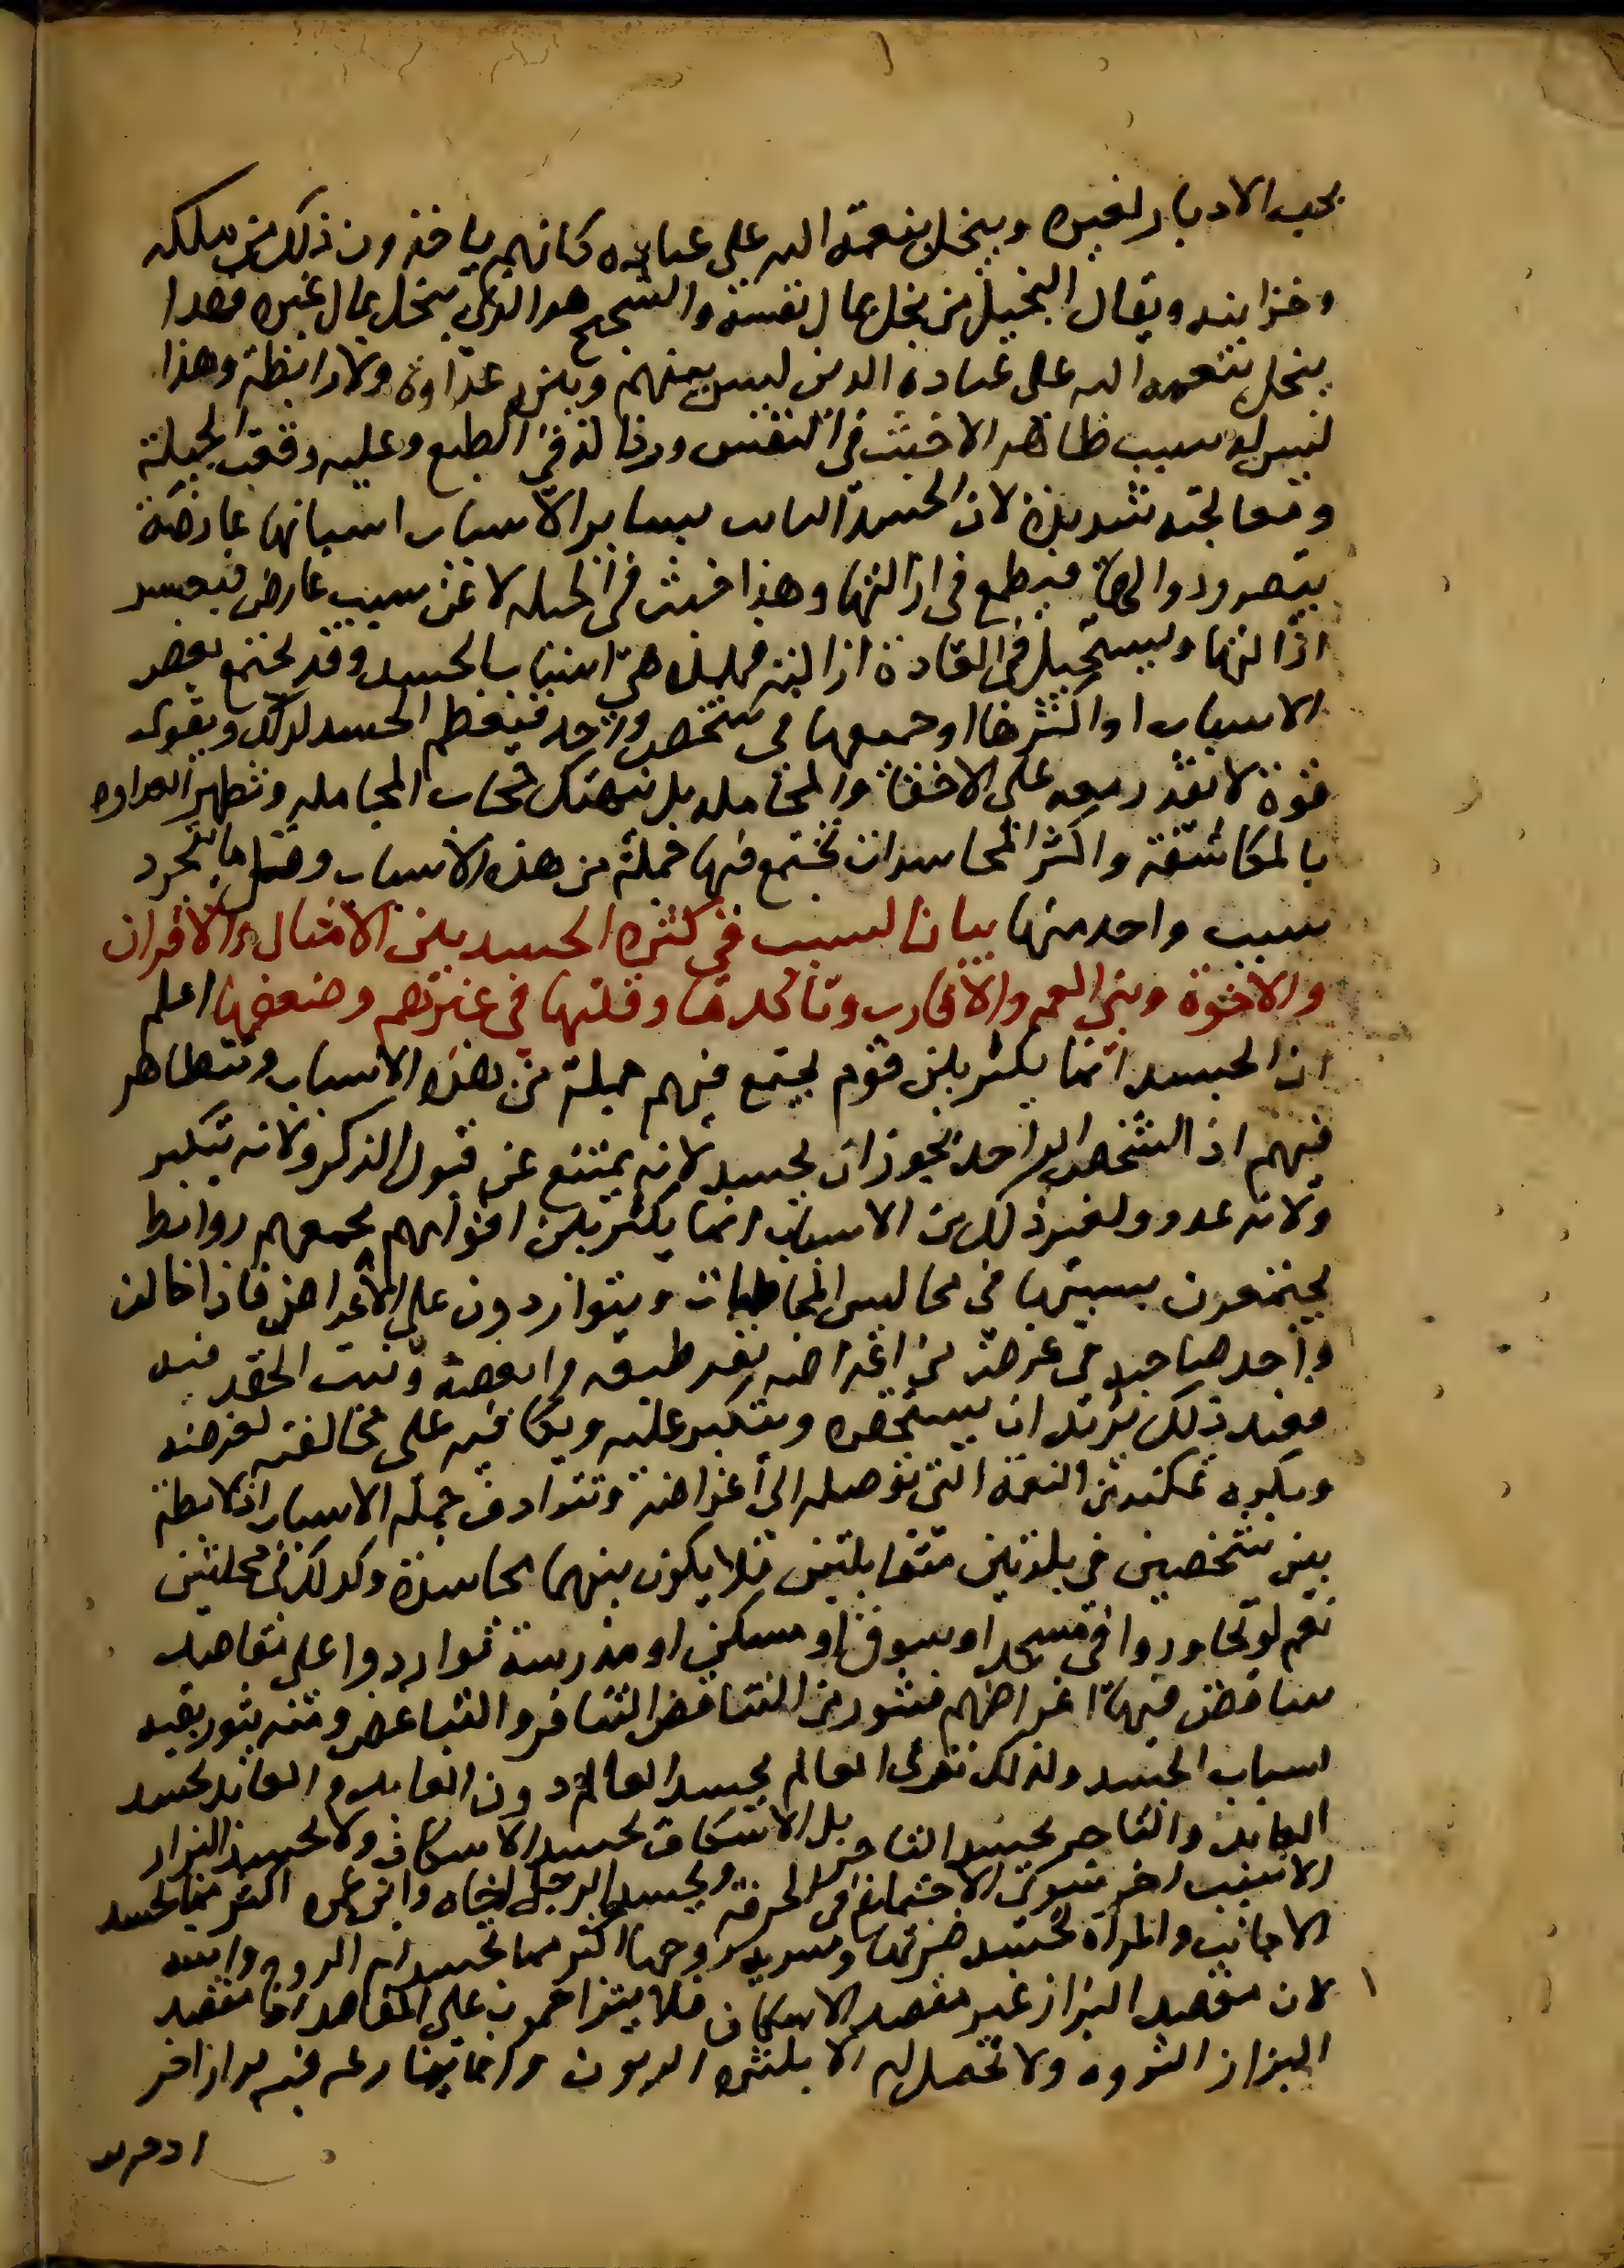 يحب الادبار لغيره ويبخل بنعمة الله على عباده كانهم ياخذون ذلك من ملكه
وخزانته ويقال البخيل من بخل بمال نفسه والشحيح هو الذي يبخل بمال غيره فهذا
يبخل بنعمة الله على عباده الذين ليس بينهم وبينه عداوة ولا رابطة وهذا
ليس له سبب ظاهر الا خبث في النفس ورذالة في الطبع وعليه وقعت الجبلة
ومعالجته شديدة لان الحسد الثابت بساير الاسباب اسبابها عارضة
يتصور زوالها فيطمع في ازالتها وهذا خبث في الجبلة لا عن سبب عارض فيعسر
ازالتها ويستحيل في العادة ازالته فهذه هي اسباب الحسد وقد يجتمع بعض
الاسباب او اكثرها او جميعها في شخص واحد فيعظم الحسد لذلك ويقوى
قوة لا يقدر معه على الاخفا والمجاملة بل يتهتك حجاب المجاملة وتظهر العداوة
بالمكاشفة واكثر المحاسدات تجتمع فيها جملة من هذه الاسباب وقل ما يتجرد
سبب واحد منها بيان السبب في كثرة الحسد بين الامثال والاقران
والاخوة وبني العم والاقارب وتاكدها وقلتها في غيرهم وضعفها اعلم
ان الحسد انما يكثر بين قوم يجتمع فيهم جملة من هذه الاسباب وتتظاهر
فيهم اذ الشخص الواحد يجوز ان يحسد لانه يمتنع عن قبول الذكر ولانه يتكبر
ولانه عدو ولغير ذلك من الاسباب انما يكثر بين اقوام تجمعهم روابط
يجتمعون بسببها في مجالس المخاطبات ويتواردون على الاغراض فاذا خالف
واحد صاحبه في غرض من اغراضه نفر طبعه وابغضه وثبت الحقد فيه
فعند ذلك يريد ان يستحقره ويتكبر عليه ويكافيه على مخالفته لغرضه
ويكره تمكنه من النعمة التي توصله الى اغراضه وتترادف جملة الاسباب اذ لا رابطة
بين شخصين في بلدتين متقابلتين فلا يكون بينهما محاسدة وكذلك في محلتين
نعم لو تجاوروا في مسجد او سوق او مسكن او مدرسة تواردوا على مقاصد
تتناقض فيها اغراضهم فيثور من التناقض التنافر والتباغض ومنه يثور بقية
اسباب الحسد ولذلك ترى العالم يحسد العالم دون العابد والعابد يحسد
العابد والتاجر يحسد التاجر بل الاسكاف يحسد الاسكاف ولا يحسد البزاز
الا بسبب اخر سوى الاجتماع في الحرفة ويحسد الرجل اخاه وابن عمه اكثر مما يحسد
الاجانب والمراة تحسد ضرتها وسرية زوجها اكثر مما تحسد ام الزوج وابنته
لان مقصد البزاز غير مقصد الاسكاف فلا يتزاحمون على المقاصد اذ مقصد
البزاز الثروة ولا تحصل له الا بكثرة الزبون وانما ينازعه فيه بزاز اخر